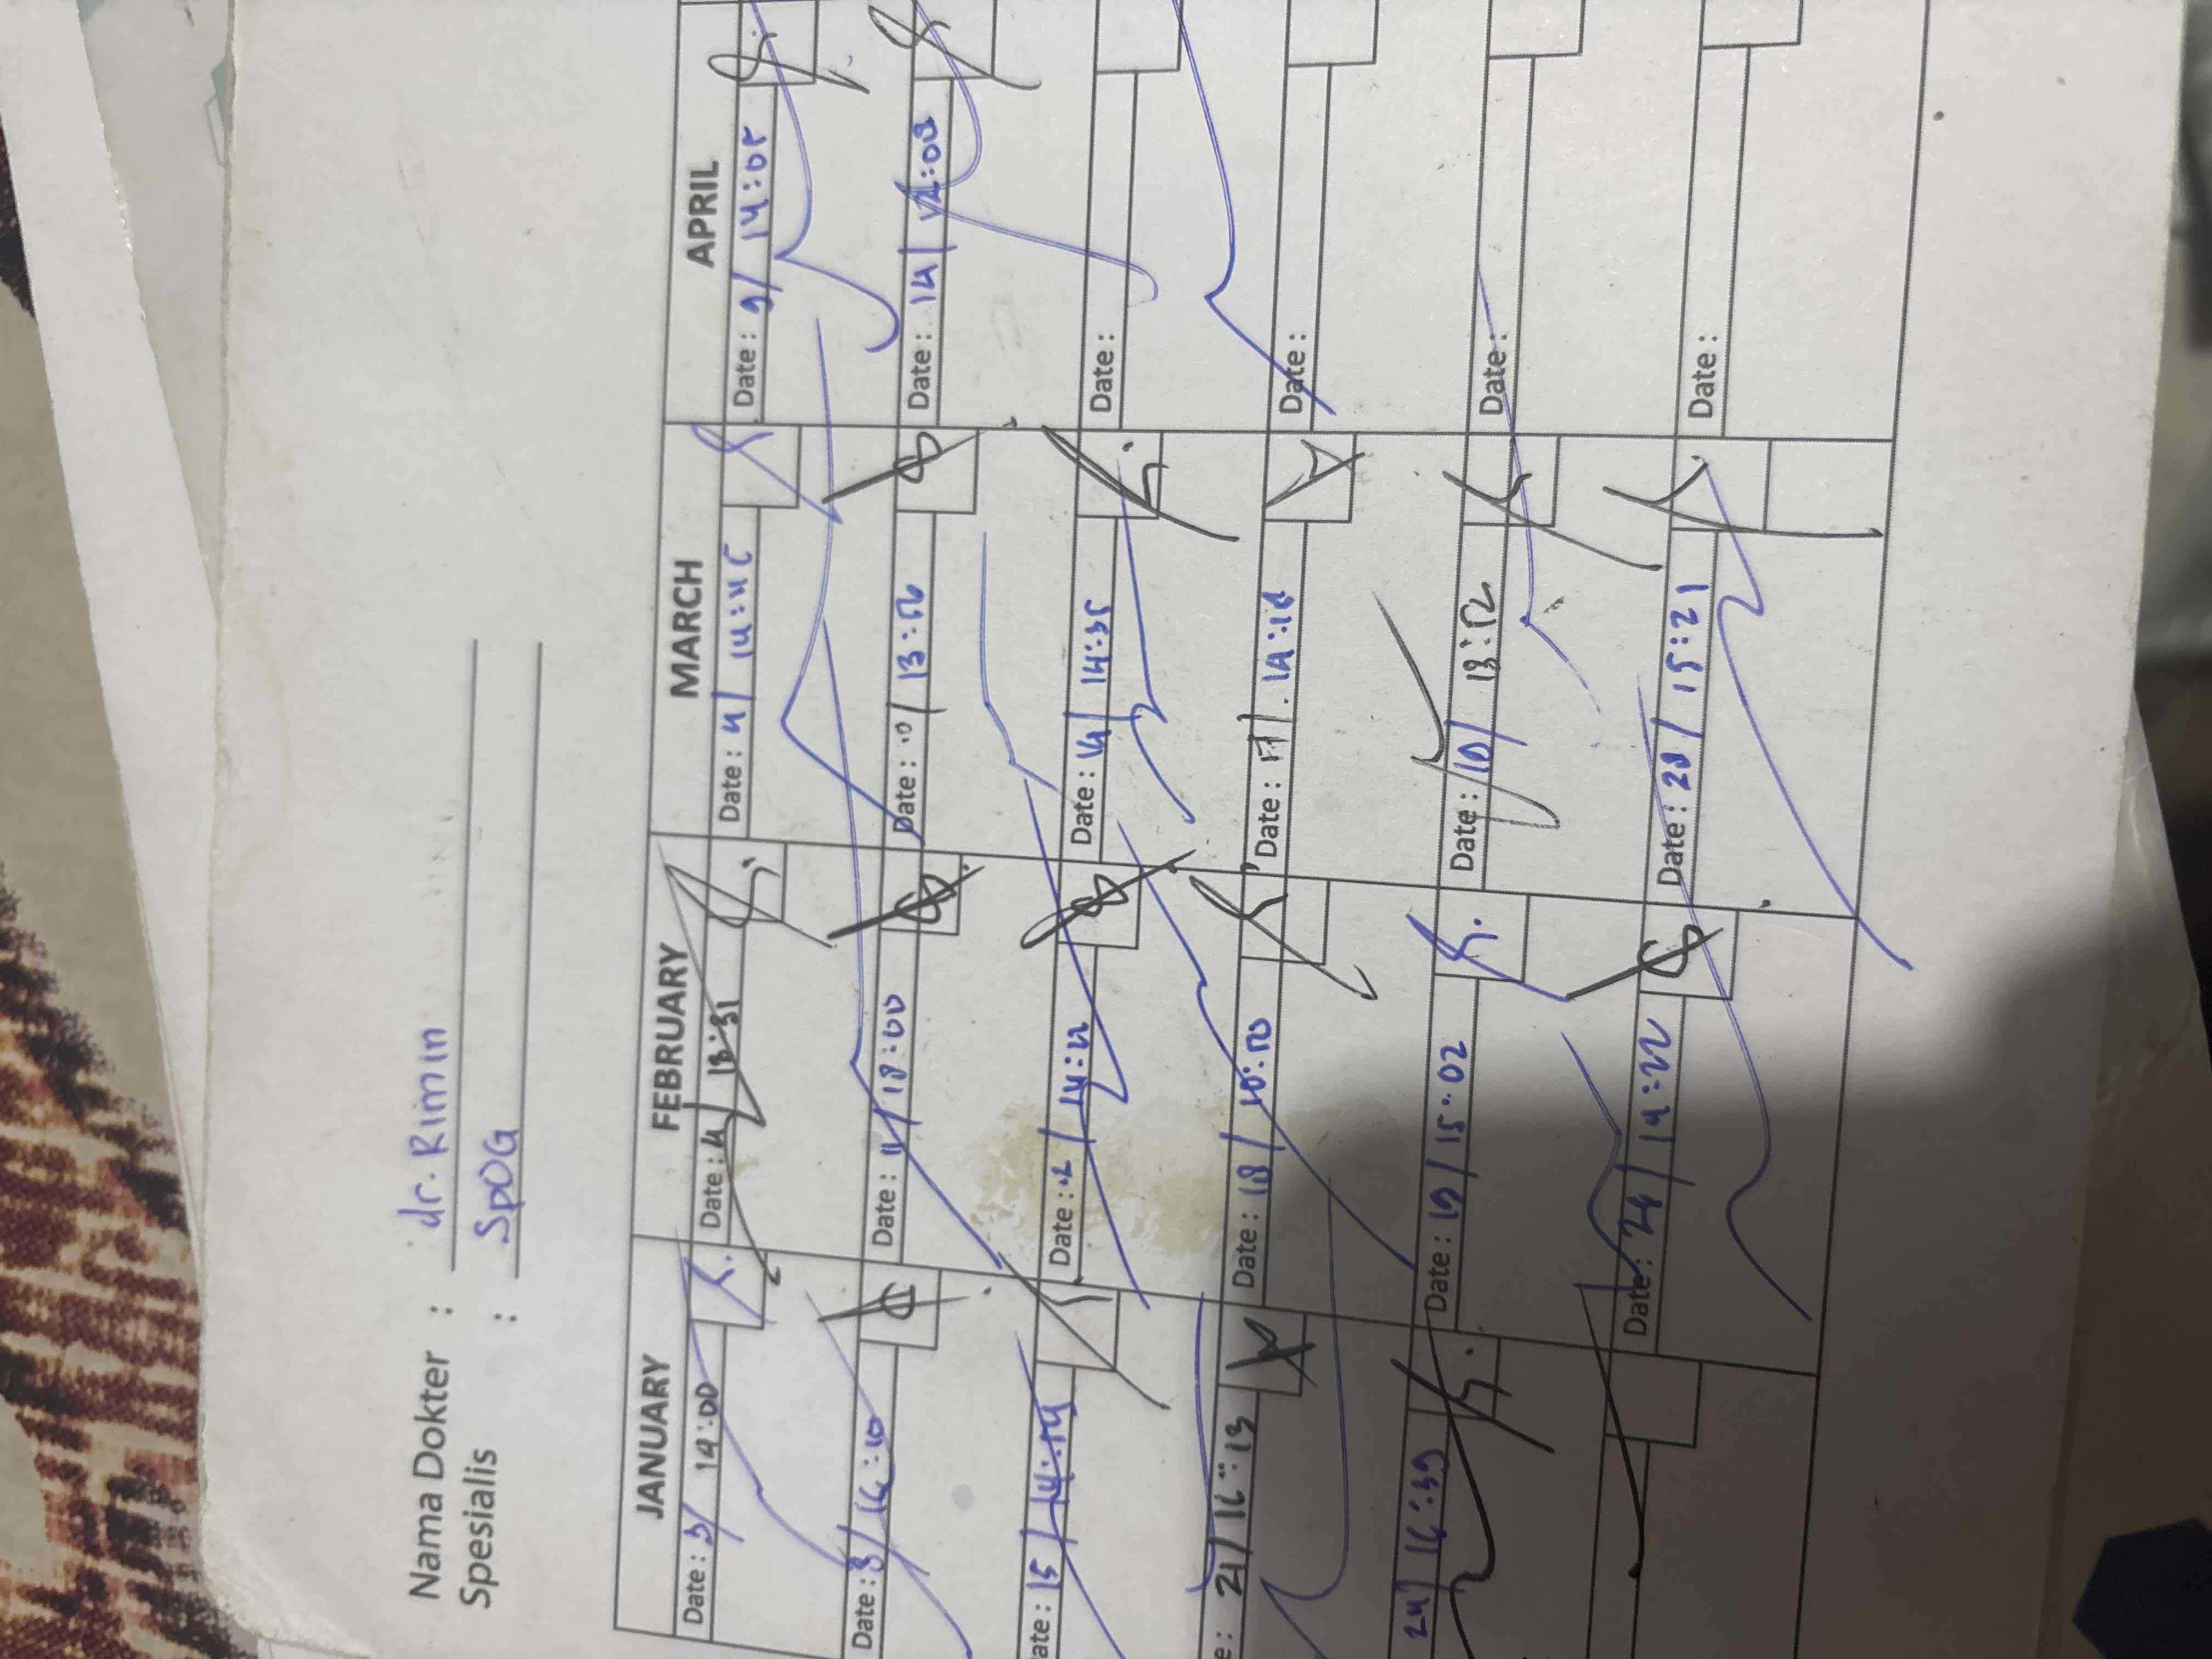 Nama Dokter : dr. Rimin
Spesialis : SpOG
JANUARY FEBRUARY MARCH APRIL
Date : 3/ 14:00 Date : 4/ 13:31 Date : 4/ 14:45 Date : 9/ 14:05
Date : 8/ 16:10 Date : 11/ 18:00 Date : 10/ 13:56 Date : 14/
Date : 15/ Date : / 14:22 Date : 14/ 14:35 Date :
21/ 16:13 Date : 18/ Date : 17/. 14:18 Date :
24/ 16:39 Date : 19/ 15:02 Date : 13:52 Date :
Date : 14:22 Date : 28/ 15:21 Date :